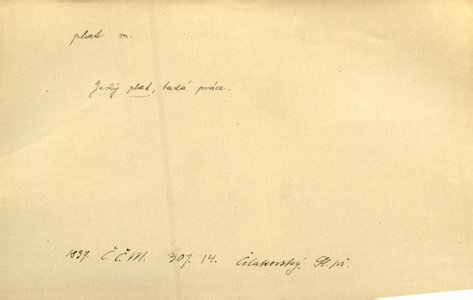 plat m.
Jaký plat, taká práce.
1837. Č.Č.M. 307. 14. Čelakovský, Sl. př.